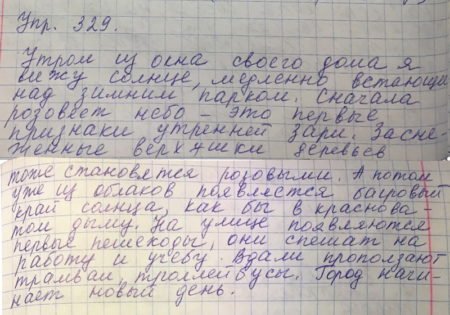 Упр. 329.
Утром из окна своего дома я
вижу солнце, медленно встающее
над зимним парком. Сначала
розовеет небо – это первые
признаки утренней зари. Засне-
женные верхушки деревьев
тоже становятся розовыми. А потом
уже из облаков появляется багровый
край солнца, как бы в краснова-
том дыму. На улице появляются
первые пешеходы, они спешат на
работу и учебу. Вдали проползают
трамваи, троллейбусы. Город начи-
нает новый день.